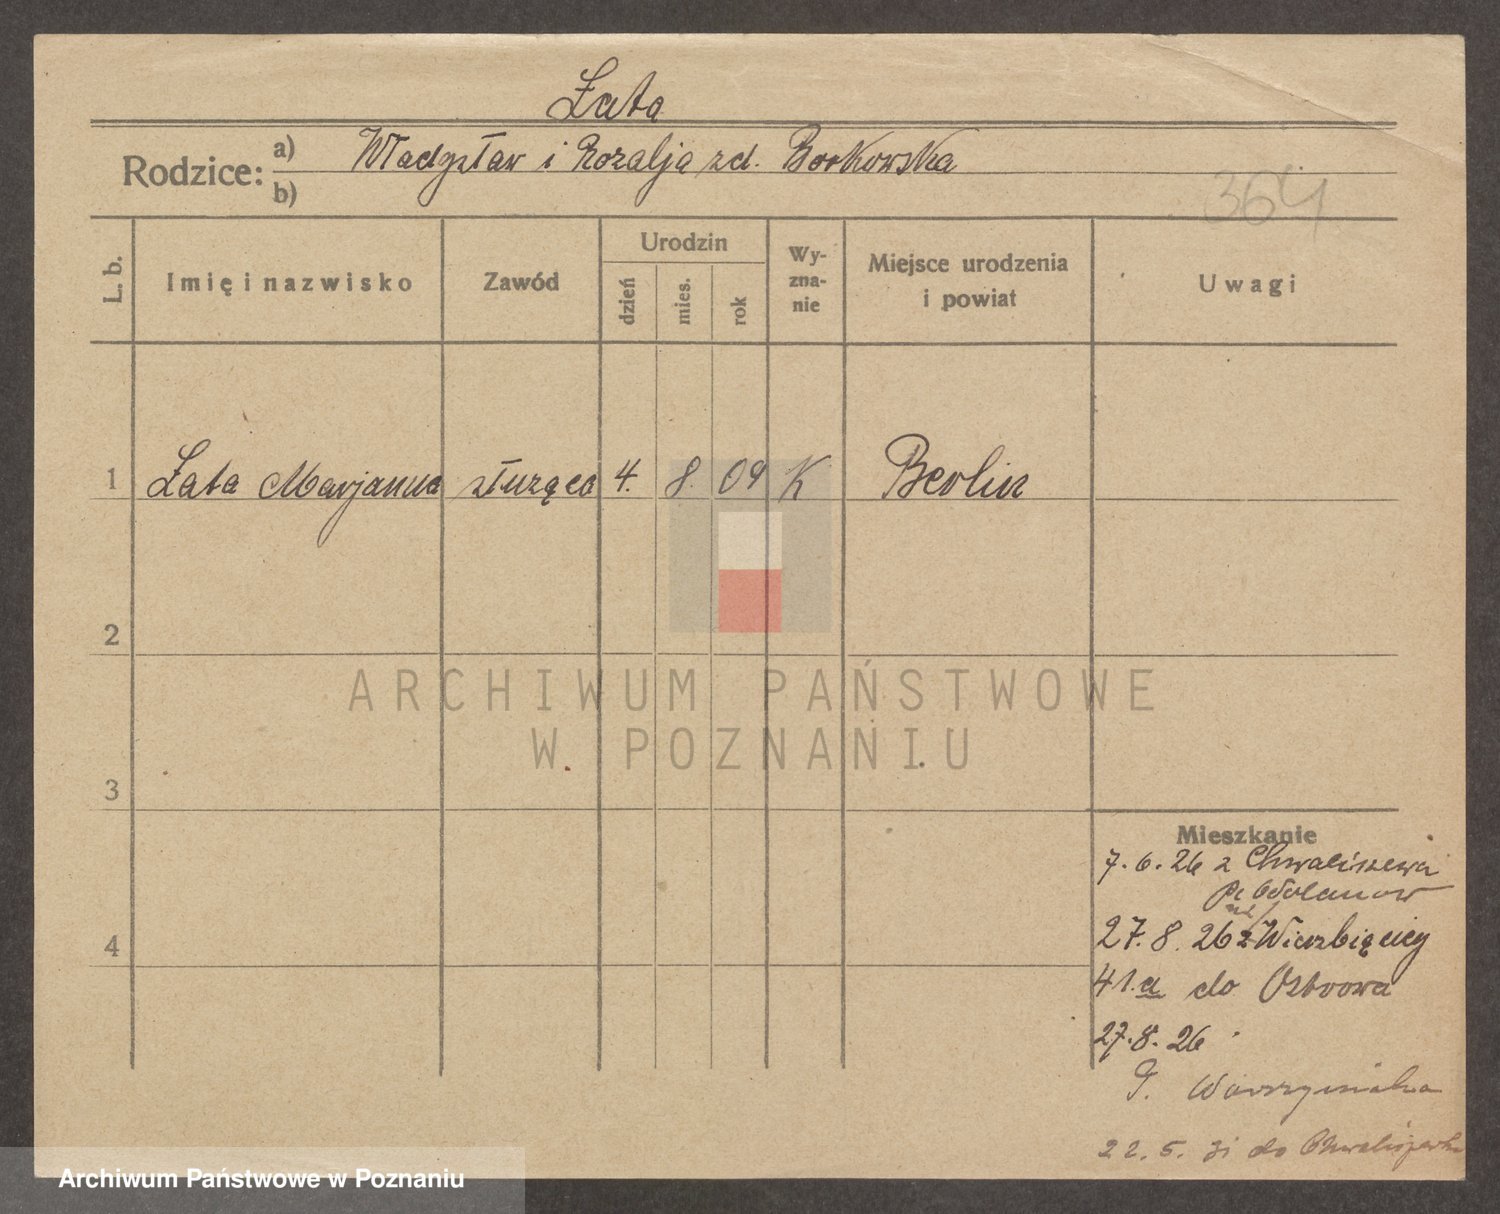 Łata
Rodzice: a) Władysław i Rozalja zd. Borkowska
b)
364
L. b. Imię i nazwisko Zawód Urodzin dzień mies. rok Wyznanie Miejsce urodzenia i powiat Uwagi
1 Łata Marjanna służąca 4. 8. 09 K Berlin
2
3
4
Mieszkanie
7. 6. 26 z Chwaliszewa
p. Odolanow
27. 8. 26 z Wierzbięcicy
41.a do Ostrowa
27. 8. 26
22. 5. 31 do
ARCHIWUM PAŃSTWOWE
W POZNANIU
Archiwum Państwowe w Poznaniu